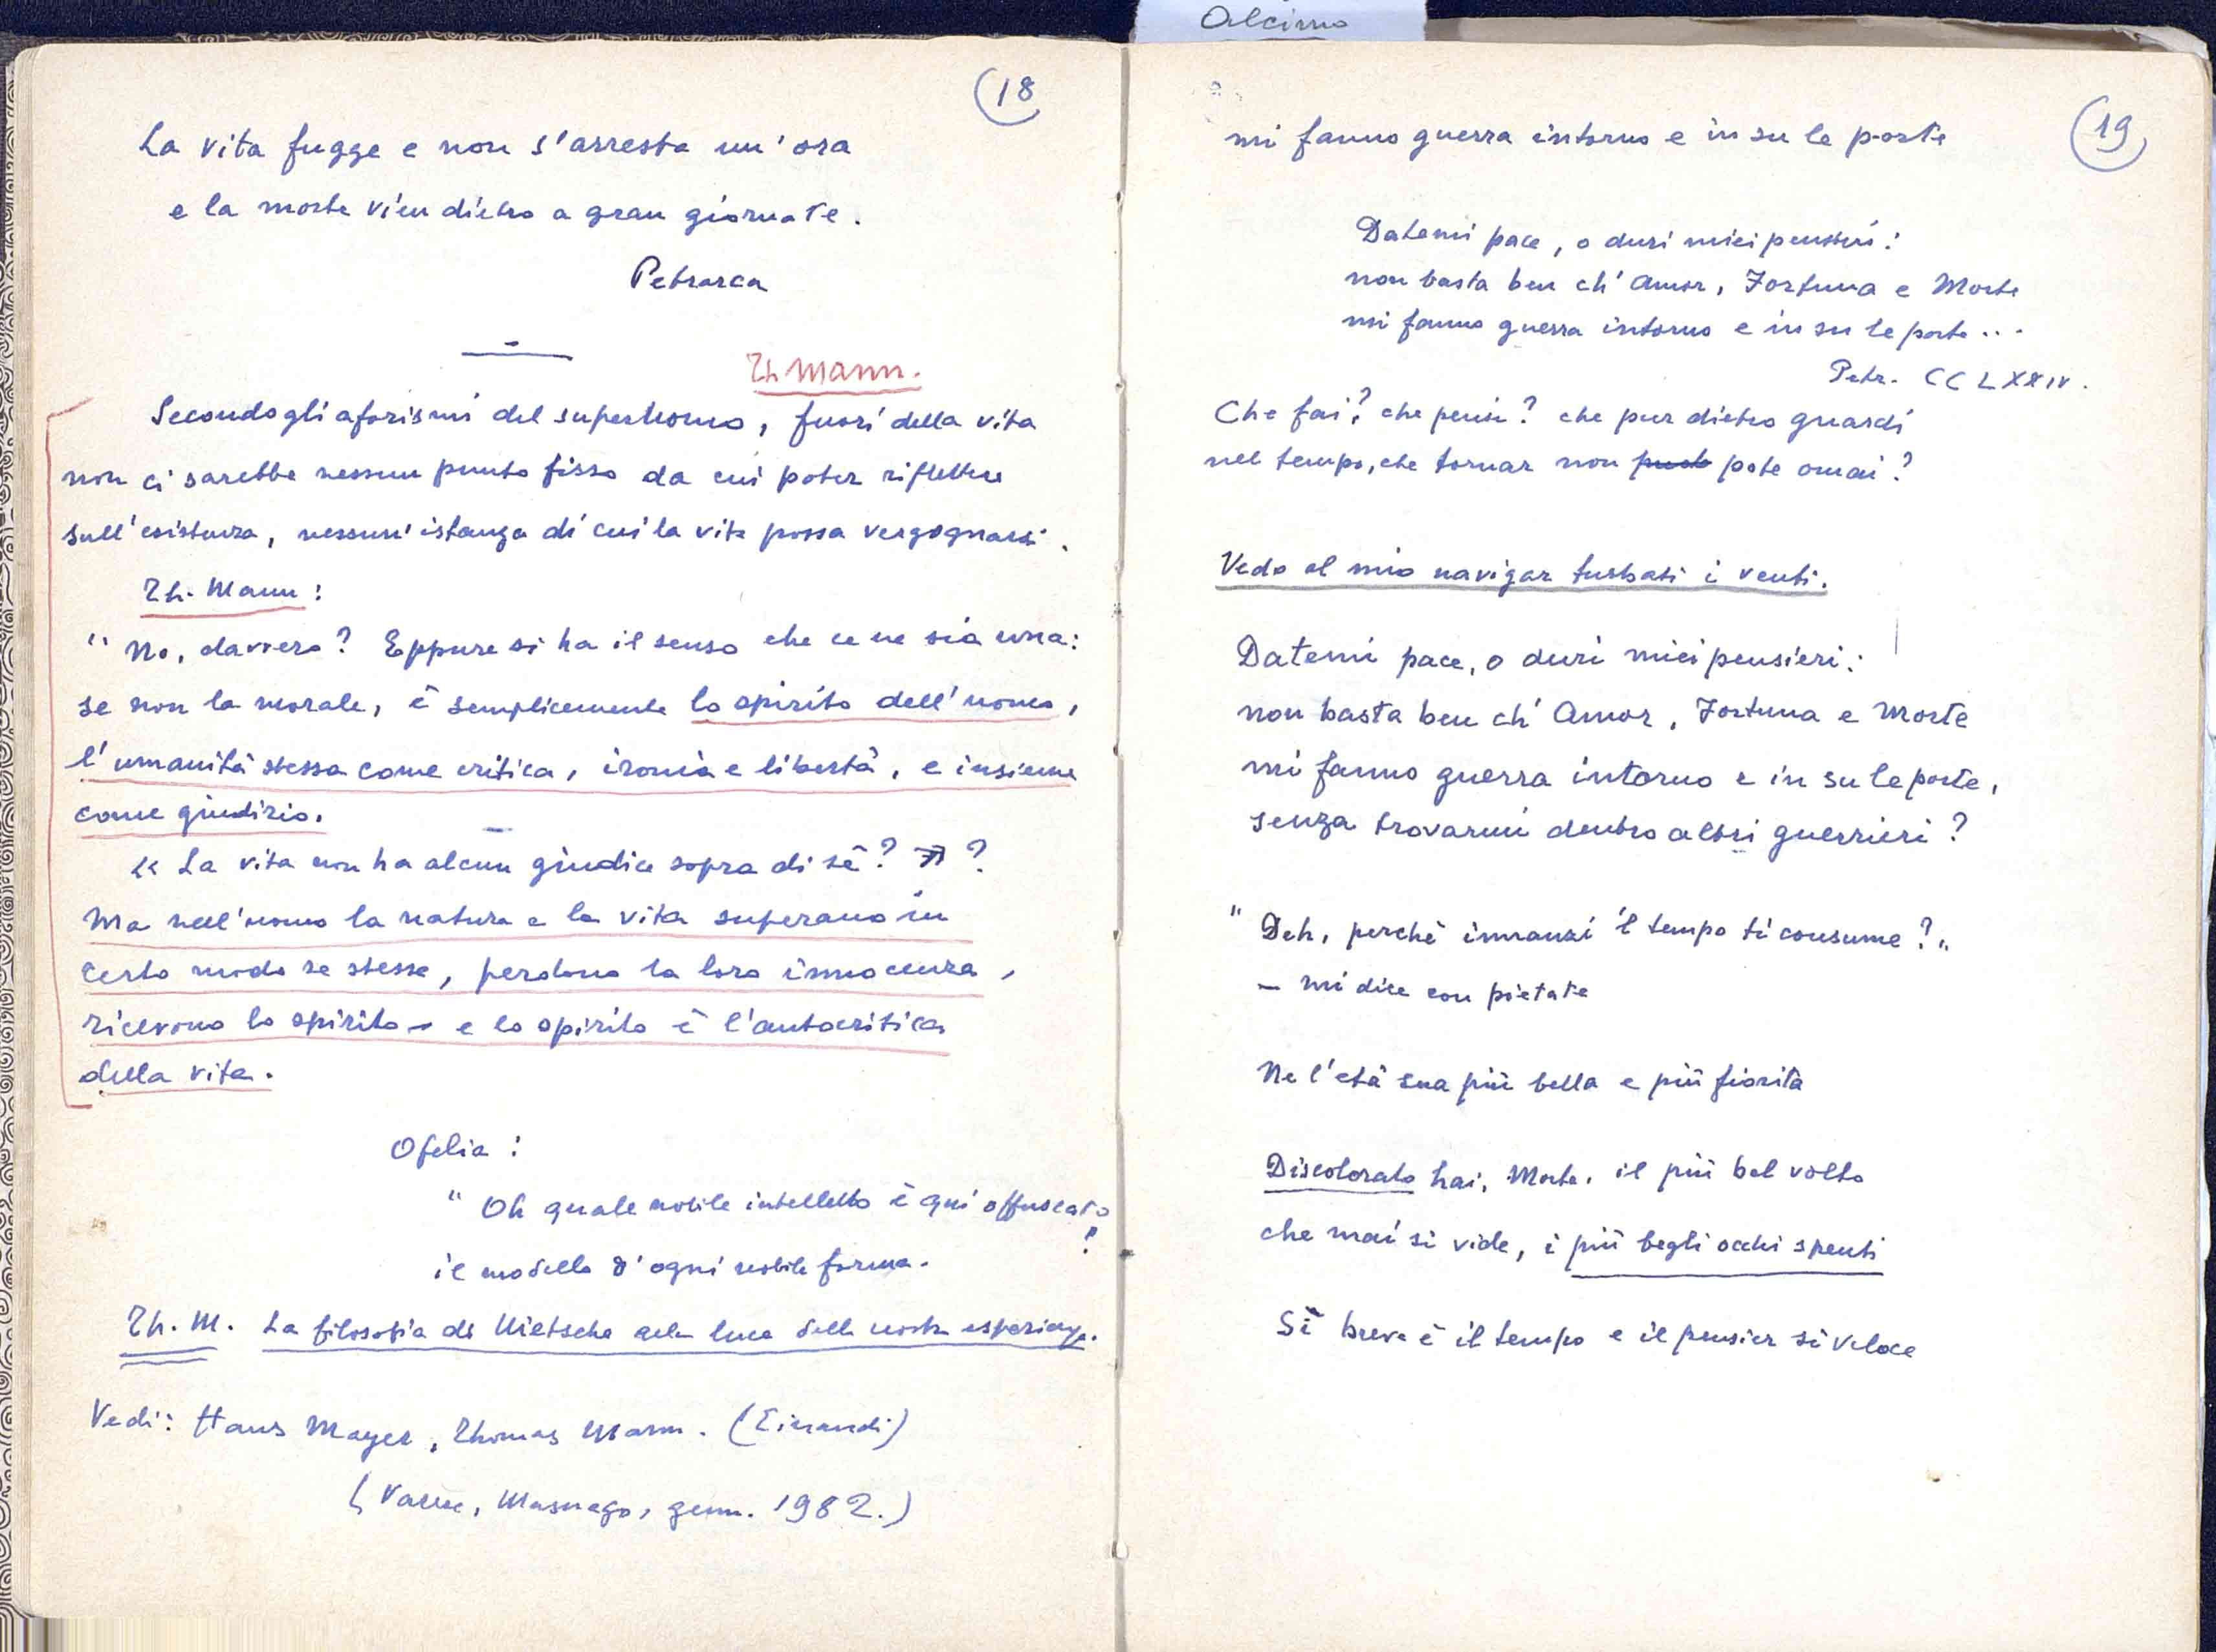 Alcimo
18
La vita fugge e non s'arresta un'ora
e la morte vien dietro a gran giornate.
Petrarca
Th Mann.
Secondo gli aforismi del superuomo, fuori della vita
non ci sarebbe nessun punto fisso da cui poter riflettere
sull'esistenza, nessun'istanza di cui la vita possa vergognarsi.
Th. Mann:
"No, davvero? Eppure si ha il senso che ce ne sia una:
se non la morale, è semplicemente lo spirito dell'uomo,
l'umanità stessa come critica, ironia e libertà, e insieme
come giudizio.
« La vita non ha alcun giudice sopra di sé? ?
Ma nell'uomo la natura e la vita superano in
certo modo se stesse, perdono la loro innocenza,
ricevono lo spirito – e lo spirito è l'autocritica
della vita.
Ofelia:
"Oh quale nobile intelletto è qui offuscato
!
il modello d'ogni nobile forma.
Th. M. La filosofia di Nietsche alla luce della nostra esperienza.
Vedi: Hans Mayer, Thomas Mann. (Einaudi)
(Varese, Masnago, genn. 1982.)
19
mi fanno guerra intorno e in su le porte
Datemi pace, o duri miei pensieri:
non basta ben ch'Amor, Fortuna e Morte
mi fanno guerra intorno e in su le porte...
Petr. CCLXXIV.
Che fai? che pensi? che pur dietro guardi
nel tempo, che tornar non pote omai?
Vedo al mio navigar turbati i venti.
Datemi pace, o duri miei pensieri:
non basta ben ch'Amor, Fortuna e Morte
mi fanno guerra intorno e in su le porte,
senza trovarmi dentro altri guerrieri?
"Deh, perché innanzi 'l tempo ti consume?"
– mi dice con pietate
Ne l'età sua più bella e più fiorita
Discolorato hai, Morte, il più bel volto
che mai si vide, i più begli occhi spenti
Sì breve è il tempo e il pensier sì veloce